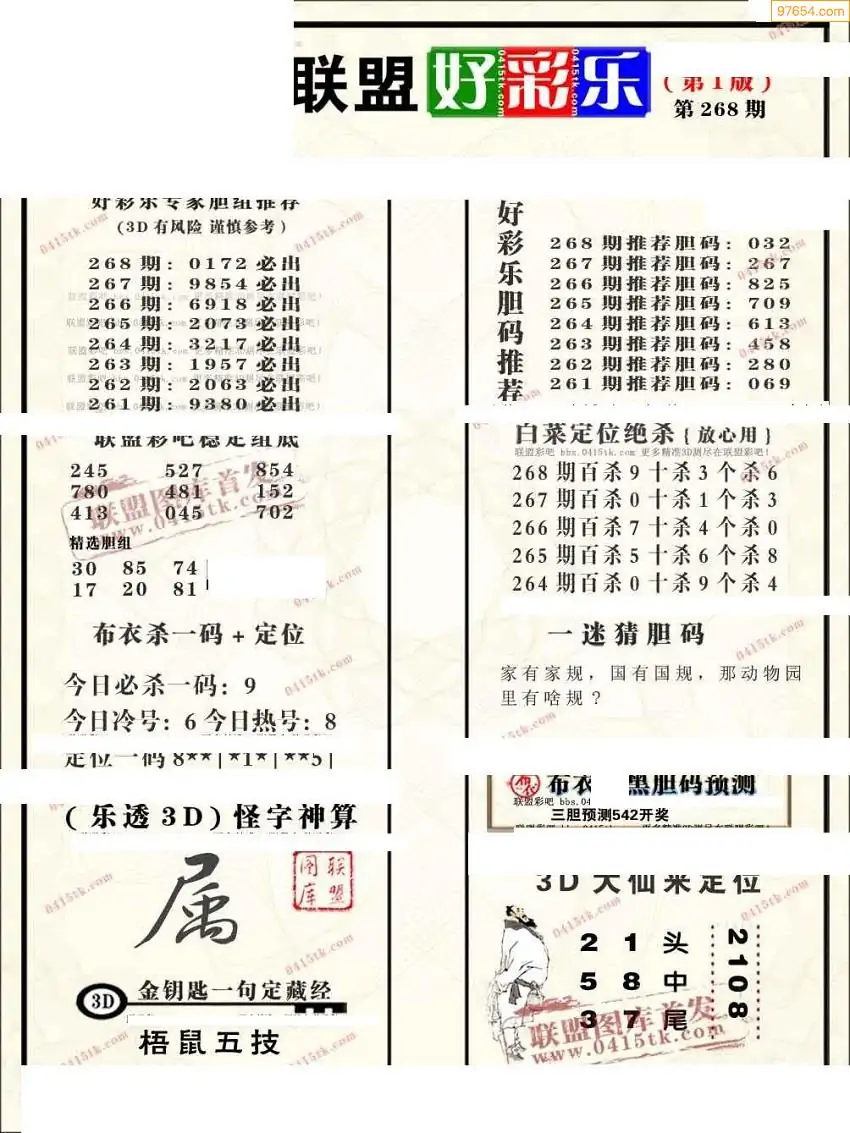 97654.com
联盟好彩乐
(第1版)
第268期
好彩乐专家胆组推荐
(3D有风险 谨慎参考)
268期: 0172必出
267期: 9854必出
266期: 6918必出
265期: 2073必出
264期: 3217必出
263期: 1957必出
262期: 2063必出
261期: 9380必出
联盟彩吧稳定组底
245 527 854
780 481 152
413 045 702
精选胆组
30 85 74
17 20 81
布衣杀一码+定位
今日必杀一码: 9
今日冷号: 6 今日热号: 8
定位一码 8**|*1*|**5|
(乐透3D)怪字神算
属
联盟图库
3D
金钥匙一句定藏经
梧鼠五技
好彩乐胆码推荐
268期推荐胆码: 032
267期推荐胆码: 267
266期推荐胆码: 825
265期推荐胆码: 709
264期推荐胆码: 613
263期推荐胆码: 458
262期推荐胆码: 280
261期推荐胆码: 069
白菜定位绝杀{放心用}
联盟彩吧 bbs.0415tk.com 更多精准3D测尽在联盟彩吧!
268期百杀9十杀3个杀6
267期百杀0十杀1个杀3
266期百杀7十杀4个杀0
265期百杀5十杀6个杀8
264期百杀0十杀9个杀4
一迷猜胆码
家有家规，国有国规，那动物园
里有啥规?
布衣 黑胆码预测
联盟彩吧 bbs.04
三胆预测542开奖
3D大仙来定位
2 1 头
5 8 中
3 7 尾
2108
联盟图库首发
www.0415tk.com